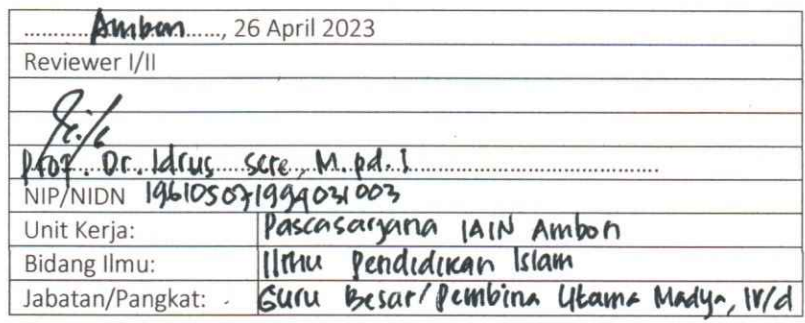 ............Ambon......, 26 April 2023
Reviewer I/II
Prof. Dr. Idrus Sere, M.pd.I
NIP/NIDN 196105071994031003
Unit Kerja: Pascasarjana IAIN Ambon
Bidang Ilmu: Ilmu Pendidikan Islam
Jabatan/Pangkat: Guru Besar/Pembina Utama Madya, IV/d